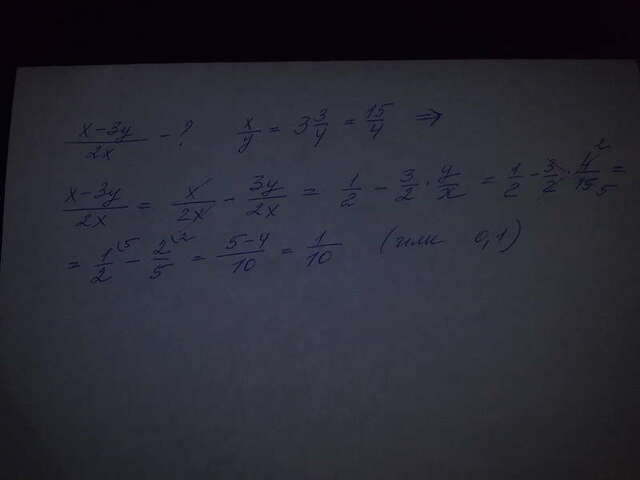 (x-3y)/(2x) - ? x/y = 3 3/4 = 15/4 ⇒
(x-3y)/(2x) = x/(2x) - 3y/(2x) = 1/2 - 3/2 · y/x = 1/2 - 3/2 · 4²/15₅ =
= 1⁽⁵/2 - 2⁽²/5 = (5-4)/10 = 1/10 (или 0,1)